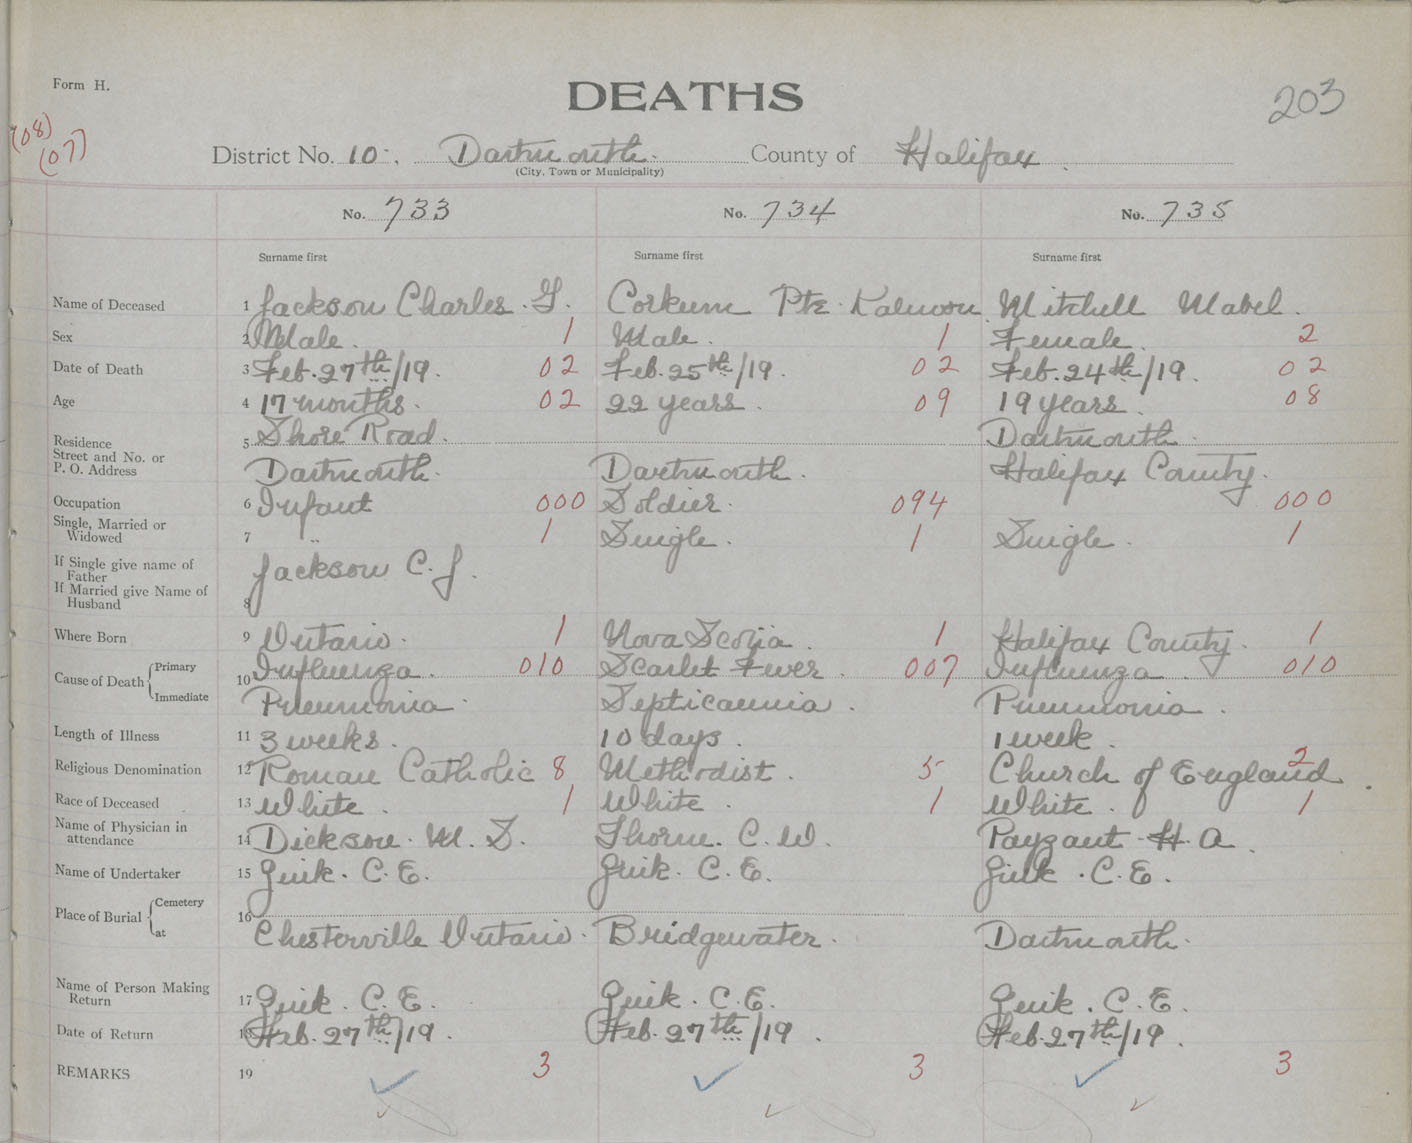 Form H.
DEATHS
203
(08)
(07)
District No. 10. Dartmouth. County of Halifax.
(City, Town or Municipality)
No. 733 No. 734 No. 735
Surname first Surname first Surname first
Name of Deceased 1 Jackson Charles. G. Corkum Pte. Mitchell Mabel.
Sex 2 Male. 1 Male. 1 Female. 2
Date of Death 3 Feb. 27th/19. 02 Feb. 25th/19. 02 Feb. 24th/19. 02
Age 4 17 months. 02 22 years. 09 19 years. 08
Residence 5 Shore Road. Dartmouth.
Street and No. or
P. O. Address Dartmouth. Dartmouth. Halifax County.
Occupation 6 Infant 000 Soldier. 094 000
Single, Married or
Widowed 7 " 1 Single. 1 Single. 1
If Single give name of
Father Jackson C. J.
If Married give Name of
Husband 8
Where Born 9 Ontario. 1 Nova Scotia. 1 Halifax County. 1
Cause of Death Primary 10 Influenza. 010 Scarlet Fever. 007 Influenza. 010
Immediate Pneumonia. Septicaemia. Pneumonia.
Length of Illness 11 3 weeks. 10 days. 1 week.
Religious Denomination 12 Roman Catholic 8 Methodist. 5 Church of England. 2
Race of Deceased 13 White. 1 White. 1 White. 1
Name of Physician in
attendance 14 Dickson. M. S. Thorne. C. W. Payzant. H. A.
Name of Undertaker 15 C. E. C. E. C. E.
Place of Burial Cemetery 16
at Chesterville Ontario. Bridgewater. Dartmouth.
Name of Person Making
Return 17 C. E. C. E. C. E.
Date of Return 18 Feb. 27th/19. Feb. 27th/19. Feb. 27th/19.
REMARKS 19 3 3 3